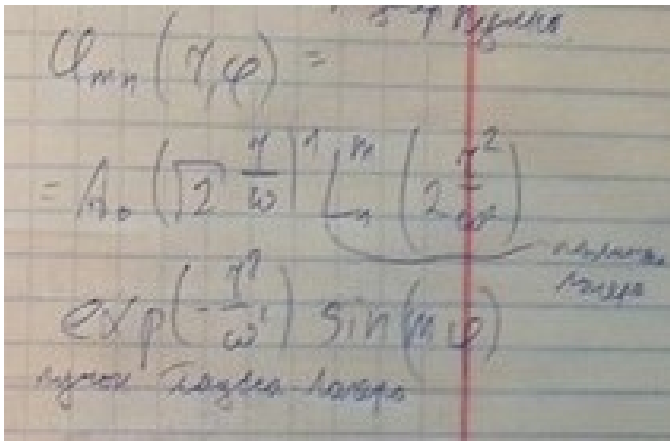 U_{mn} (r, φ) =
= A_0 (√2 r/ω)^n L_n^m (2 r²/ω²)
полином Лагера
exp(- r²/ω²) sin(mφ)
пучок Гаусса-Лагера